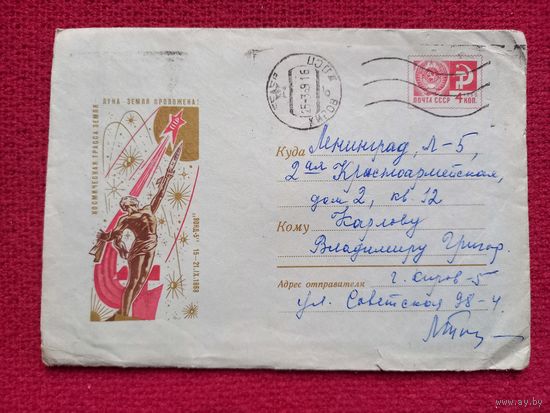 КОСМИЧЕСКАЯ ТРАССА ЗЕМЛЯ
ЛУНА - ЗЕМЛЯ ПРОЛОЖЕНА!
"ЗОНД-5" 15-21.IX.1968
ПОЧТА СССР 4 КОП.
Куда Ленинград, Л-5,
2ая Красноармейская,
дом 2, кв 12
Кому Карлову
Владимиру Григор.
Адрес отправителя г. Киров-5
ул. Советская 98-4
www.ay.by